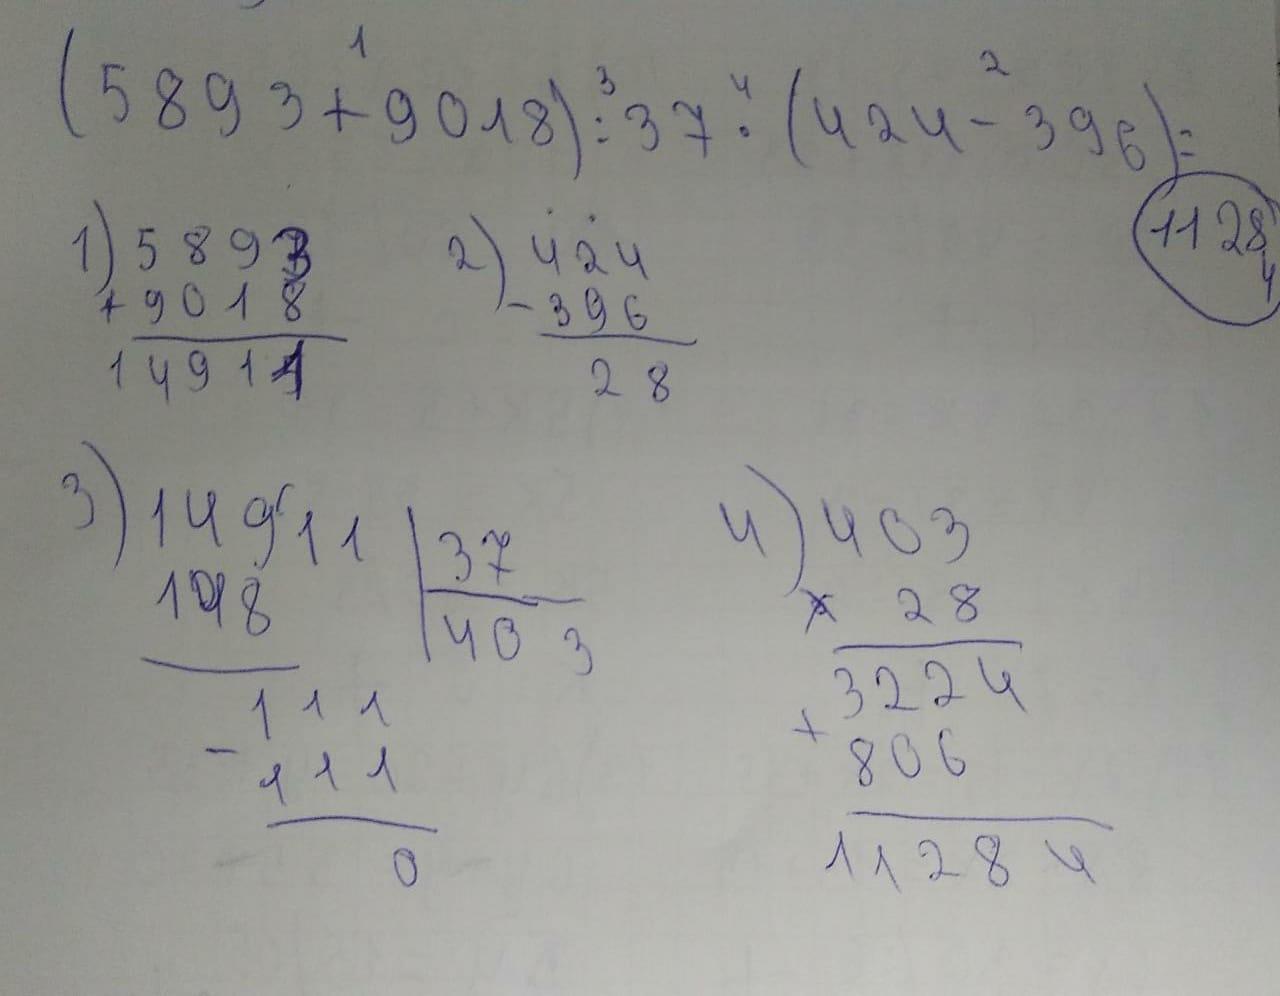 (5893+9018):37·(424-396)=
1 3 4 2
11284
1) 5893
+9018
14911
2) 424
-396
28
3) 14911 37
148 403
111
-111
0
4) 403
x 28
3224
+
806
11284